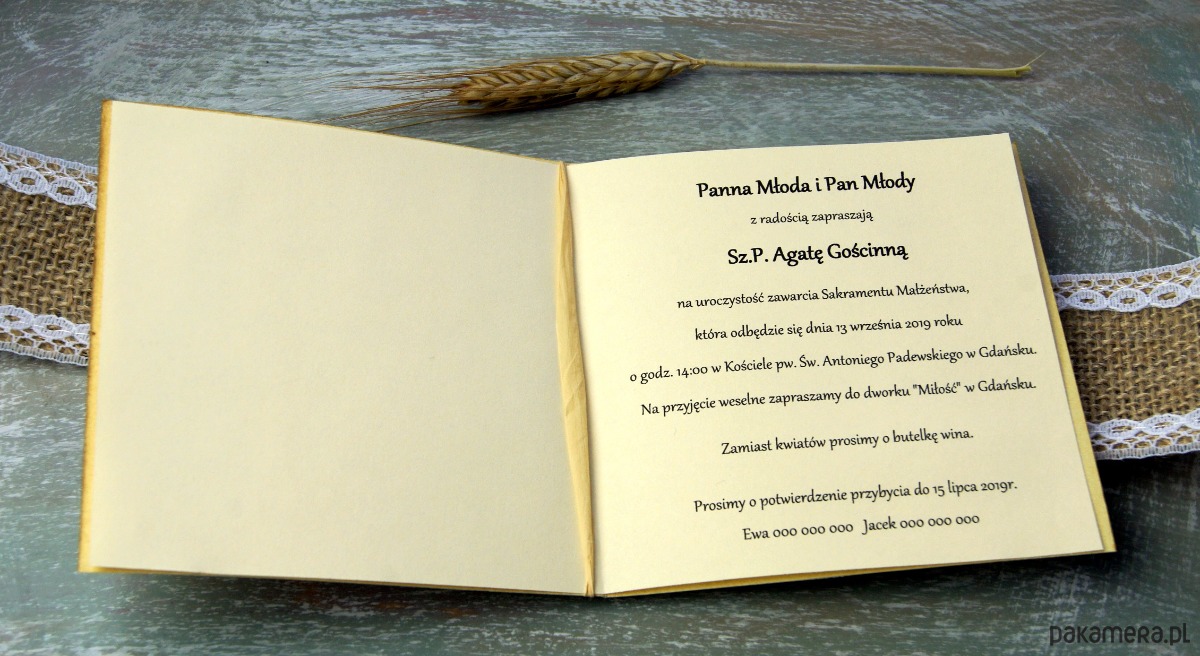 Panna Młoda i Pan Młody
z radością zapraszają
Sz.P. Agatę Gościnną
na uroczystość zawarcia Sakramentu Małżeństwa,
która odbędzie się dnia 13 września 2019 roku
o godz. 14:00 w Kościele pw. Św. Antoniego Padewskiego w Gdańsku.
Na przyjęcie weselne zapraszamy do dworku "Miłość" w Gdańsku.
Zamiast kwiatów prosimy o butelkę wina.
Prosimy o potwierdzenie przybycia do 15 lipca 2019r.
Ewa 000 000 000 Jacek 000 000 000
pakamera.pl